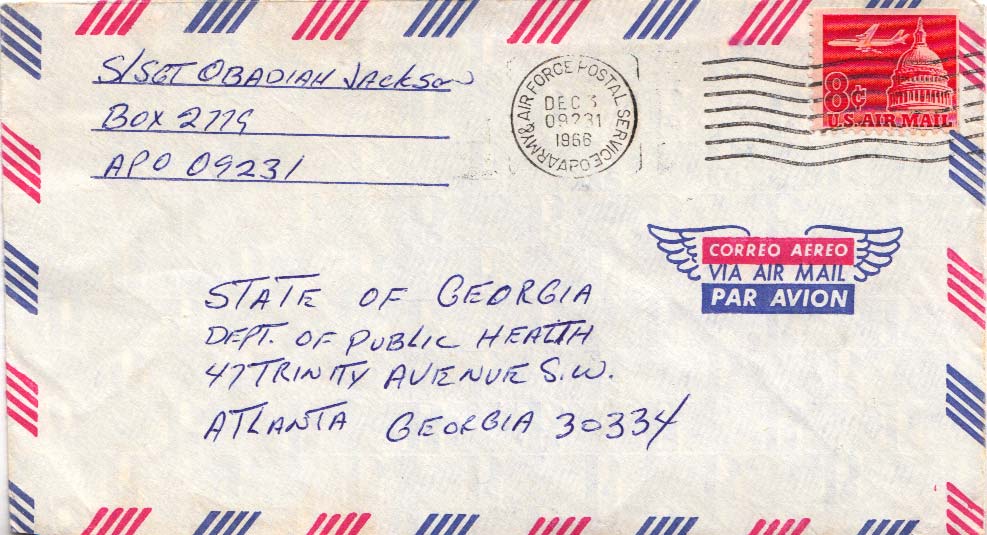 S/SGT OBADIAH Jackson
BOX 2779
APO 09231
ARMY & AIR FORCE POSTAL SERVICE APO
DEC 3
09231
1966
8¢
U.S. AIR MAIL
CORREO AEREO
VIA AIR MAIL
PAR AVION
STATE OF GEORGIA
DEPT. OF PUBLIC HEALTH
47 TRINITY AVENUE S.W.
ATLANTA GEORGIA 30334